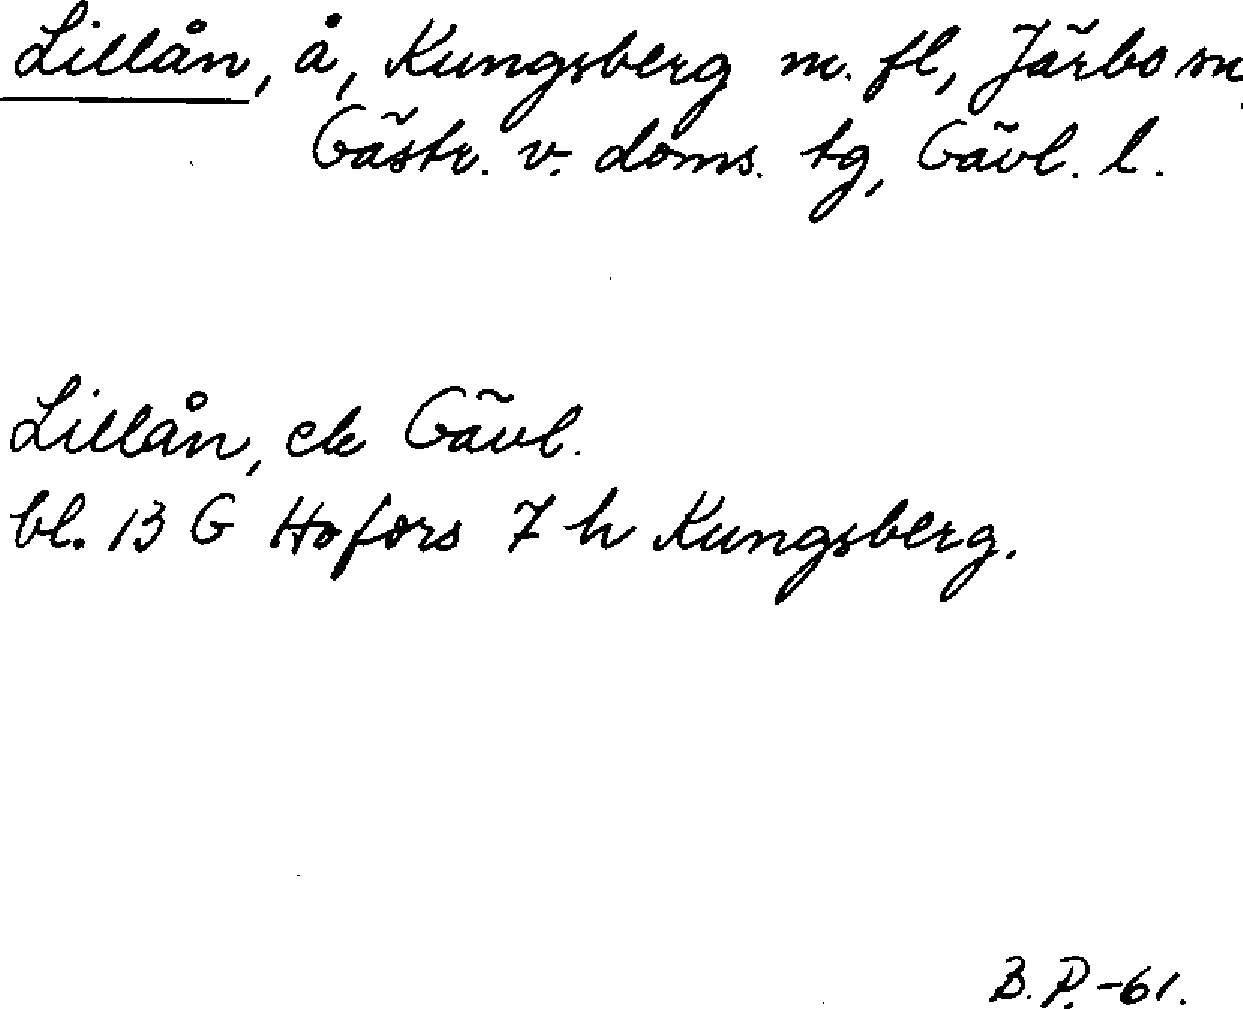 Lillån, å, Kungsberg m. fl, Järbo sn
Gästr. v. doms. tg, Gävl. l.
Lillån, ek Gävl.
bl. 13 G Hofors 7 h Kungsberg.
B. P. -61.